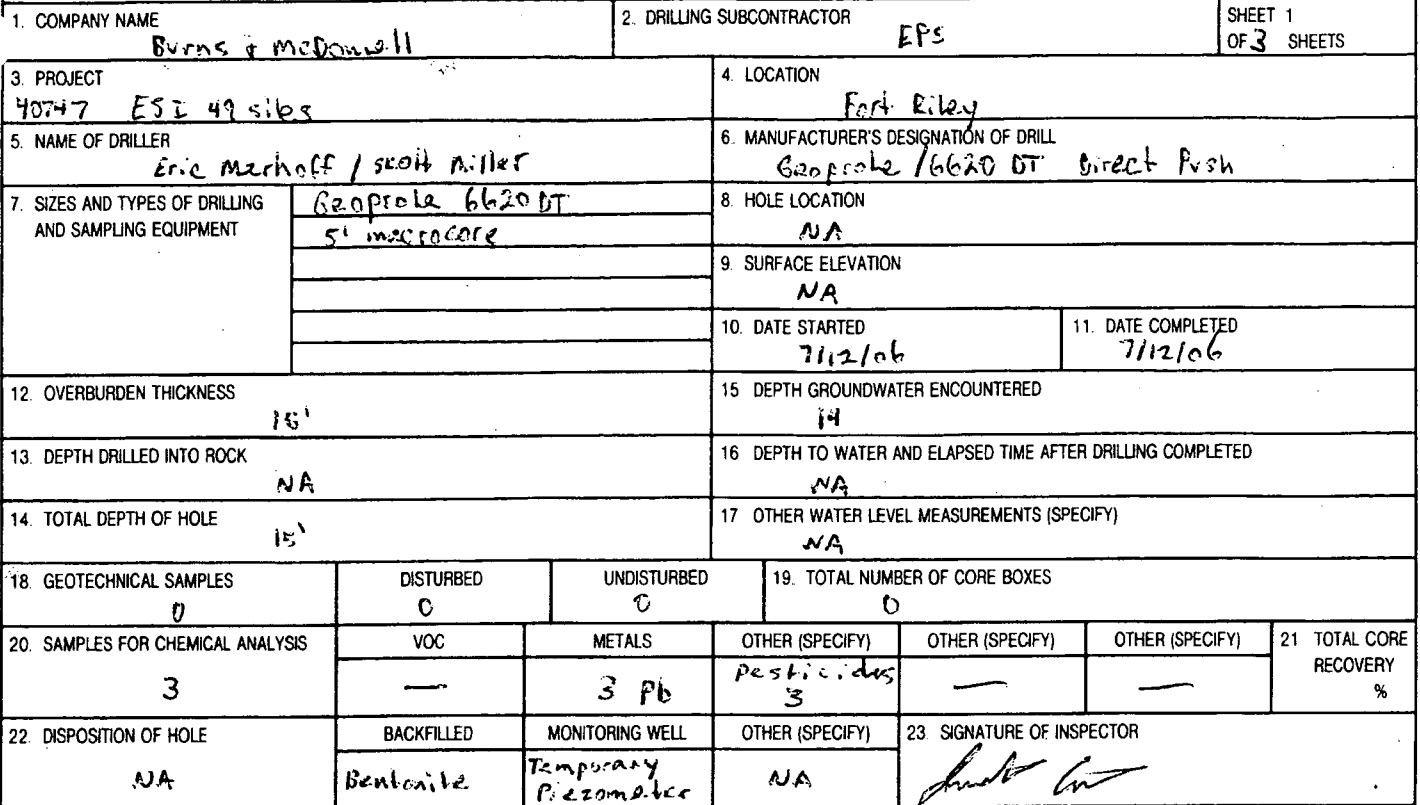 1. COMPANY NAME
Burns & McDonnell
2. DRILLING SUBCONTRACTOR
EPS
SHEET 1
OF 3 SHEETS
3. PROJECT
40747 ESI 49 sites
4. LOCATION
Fort Riley
5. NAME OF DRILLER
Eric Merhoff / Scott Miller
6. MANUFACTURER'S DESIGNATION OF DRILL
Geoprobe / 6620 DT Direct Push
7. SIZES AND TYPES OF DRILLING
AND SAMPLING EQUIPMENT
Geoprobe 6620 DT
5' macrocore
8. HOLE LOCATION
NA
9. SURFACE ELEVATION
NA
10. DATE STARTED
7/12/06
11. DATE COMPLETED
7/12/06
12. OVERBURDEN THICKNESS
15'
15 DEPTH GROUNDWATER ENCOUNTERED
14
13. DEPTH DRILLED INTO ROCK
NA
16 DEPTH TO WATER AND ELAPSED TIME AFTER DRILLING COMPLETED
NA
14. TOTAL DEPTH OF HOLE
15'
17 OTHER WATER LEVEL MEASUREMENTS (SPECIFY)
NA
18. GEOTECHNICAL SAMPLES
0
DISTURBED
0
UNDISTURBED
0
19. TOTAL NUMBER OF CORE BOXES
0
20. SAMPLES FOR CHEMICAL ANALYSIS
3
VOC
—
METALS
3 Pb
OTHER (SPECIFY)
Pesticides
3
OTHER (SPECIFY)
—
OTHER (SPECIFY)
—
21 TOTAL CORE
RECOVERY
%
22. DISPOSITION OF HOLE
NA
BACKFILLED
Bentonite
MONITORING WELL
Temporary
Piezometer
OTHER (SPECIFY)
NA
23. SIGNATURE OF INSPECTOR